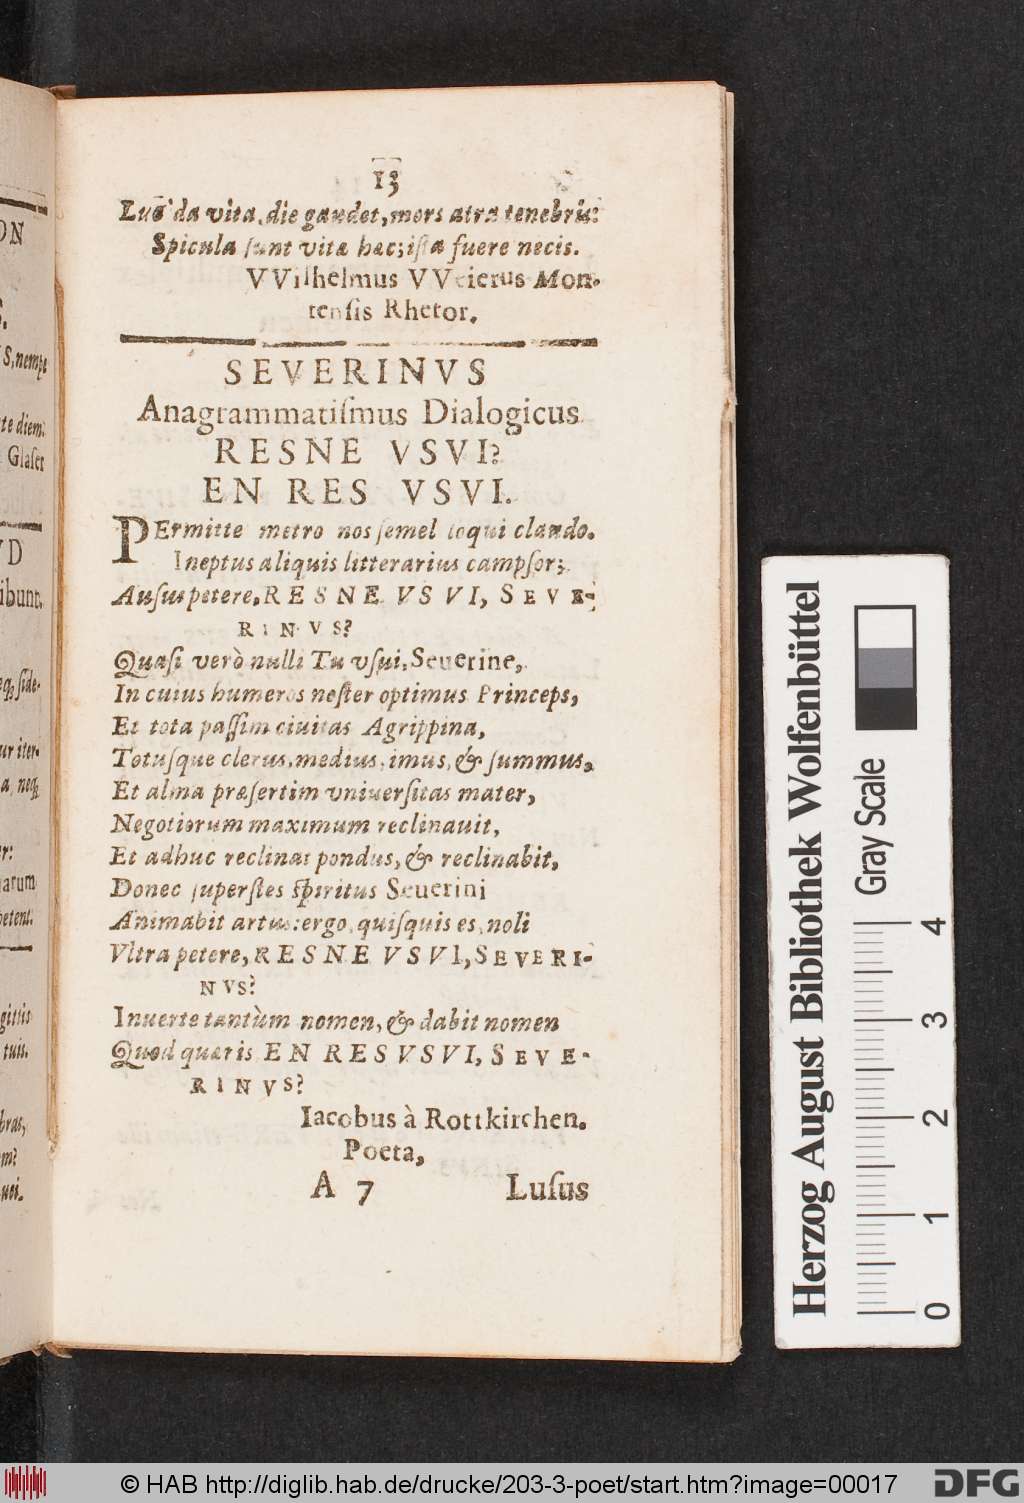 13
Luc̄da vita, die gaudet, mors atra tenebris:
Spicula sunt vitæ hæc; ista fuere necis.
VVilhelmus VVeierus Mon-
tensis Rhetor.
SEVERINVS
Anagrammatiſmus Dialogicus
RESNE VSVI?
EN RES VSVI.
PErmitte metro nos ſemel loqui claudo.
Ineptus aliquis litterarius campſor;
Auſus petere, RESNE VSVI, SEVE-
RINVS?
Quaſi verò nulli Tu vſui, Seuerine,
In cuius humeros noſter optimus Princeps,
Et tota paſſim ciuitas Agrippina,
Totuſque clerus, medius, imus, & ſummus,
Et alma præſertim vniuerſitas mater,
Negotiorum maximum reclinauit,
Et adhuc reclinat pondus, & reclinabit,
Donec ſuperſtes ſpiritus Seuerini
Animabit artus: ergo, quiſquis es, noli
Vltra petere, RESNE VSVI, SEVERI-
NVS?
Inuerte tantùm nomen, & dabit nomen
Quod quæris EN RES VSVI, SEVE-
RINVS?
Iacobus à Rottkirchen.
Poeta,
A 7 Luſus
ON
S.
S, nempe
te diem:
Glaſer
VD
ibunt.
ur iter.
a, neq;
r:
arum
petent.
gitiis
tuis.
bras,
Herzog August Bibliothek Wolfenbüttel
Gray Scale
0 1 2 3 4
© HAB http://diglib.hab.de/drucke/203-3-poet/start.htm?image=00017
DFG